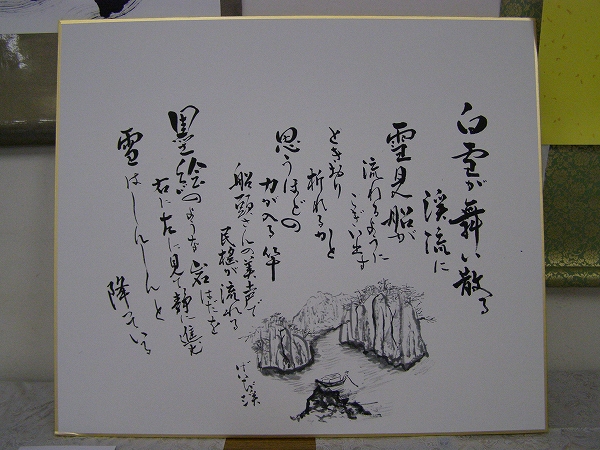 白雪が舞い散る
渓流に
雪見船が
流れるように
こぎい出す
ときおり
折れるかと
思うほどの
力が入る竿
船頭さんの美声で
民謡が流れる
墨絵のような岩はだを
右に左に見て静に進む
雪はしんしんと
降っている
げいび渓